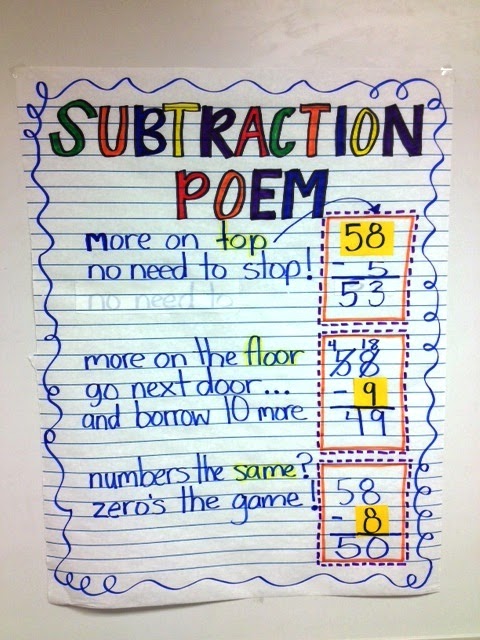 SUBTRACTION
POEM
more on top
no need to stop!
58
- 5
53
no need to
more on the floor
go next door...
and borrow 10 more
4 18
58
- 9
49
numbers the same?
zero's the game!
58
- 8
50